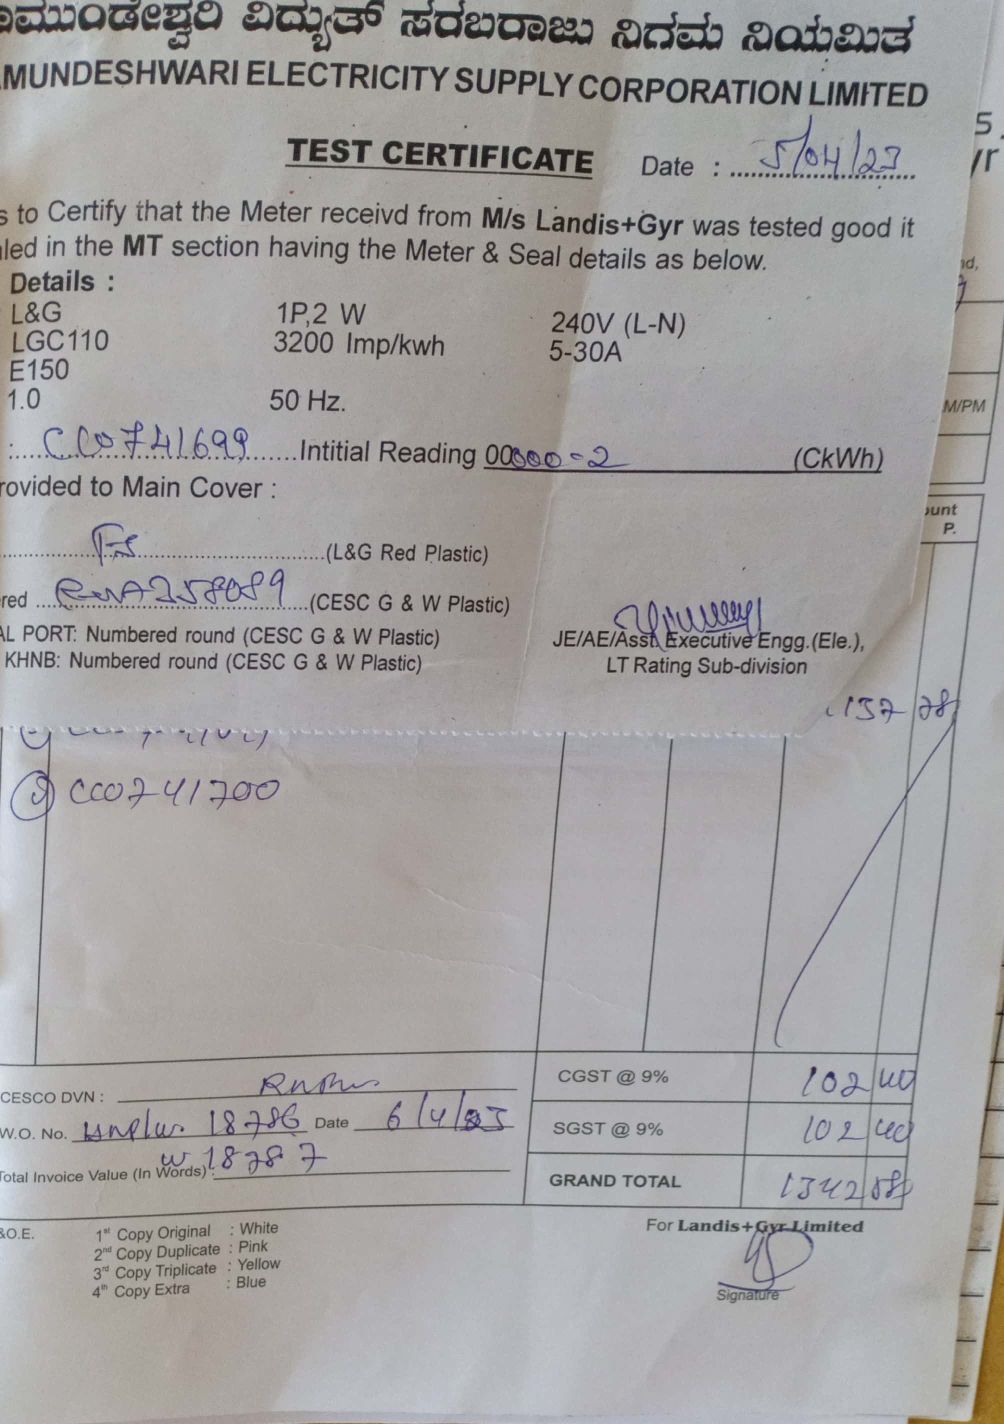 ಾಮುಂಡೇಶ್ವರಿ ವಿದ್ಯುತ್ ಸರಬರಾಜು ನಿಗಮ ನಿಯಮಿತ
MUNDESHWARI ELECTRICITY SUPPLY CORPORATION LIMITED
TEST CERTIFICATE Date : 5/04/23
s to Certify that the Meter receivd from M/s Landis+Gyr was tested good it
led in the MT section having the Meter & Seal details as below.
Details :
L&G 1P,2 W 240V (L-N)
LGC110 3200 Imp/kwh 5-30A
E150
1.0 50 Hz.
: CC0741699 Intitial Reading 00000-2 (CkWh)
rovided to Main Cover :
(L&G Red Plastic)
red (CESC G & W Plastic)
AL PORT: Numbered round (CESC G & W Plastic) JE/AE/Asst. Executive Engg.(Ele.),
KHNB: Numbered round (CESC G & W Plastic) LT Rating Sub-division
5.
yr
nd,
M/PM
ount
P.
1137 78
CC0741700
CGST @ 9% 102 40
CESCO DVN :
W.O. No. 18786 Date 6/4/23
SGST @ 9% 102 40
W 18787
Total Invoice Value (In Words) :
GRAND TOTAL 1342 58
&O.E.
1st Copy Original : White
2nd Copy Duplicate : Pink
3rd Copy Triplicate : Yellow
4th Copy Extra : Blue
For Landis+Gyr Limited
Signature